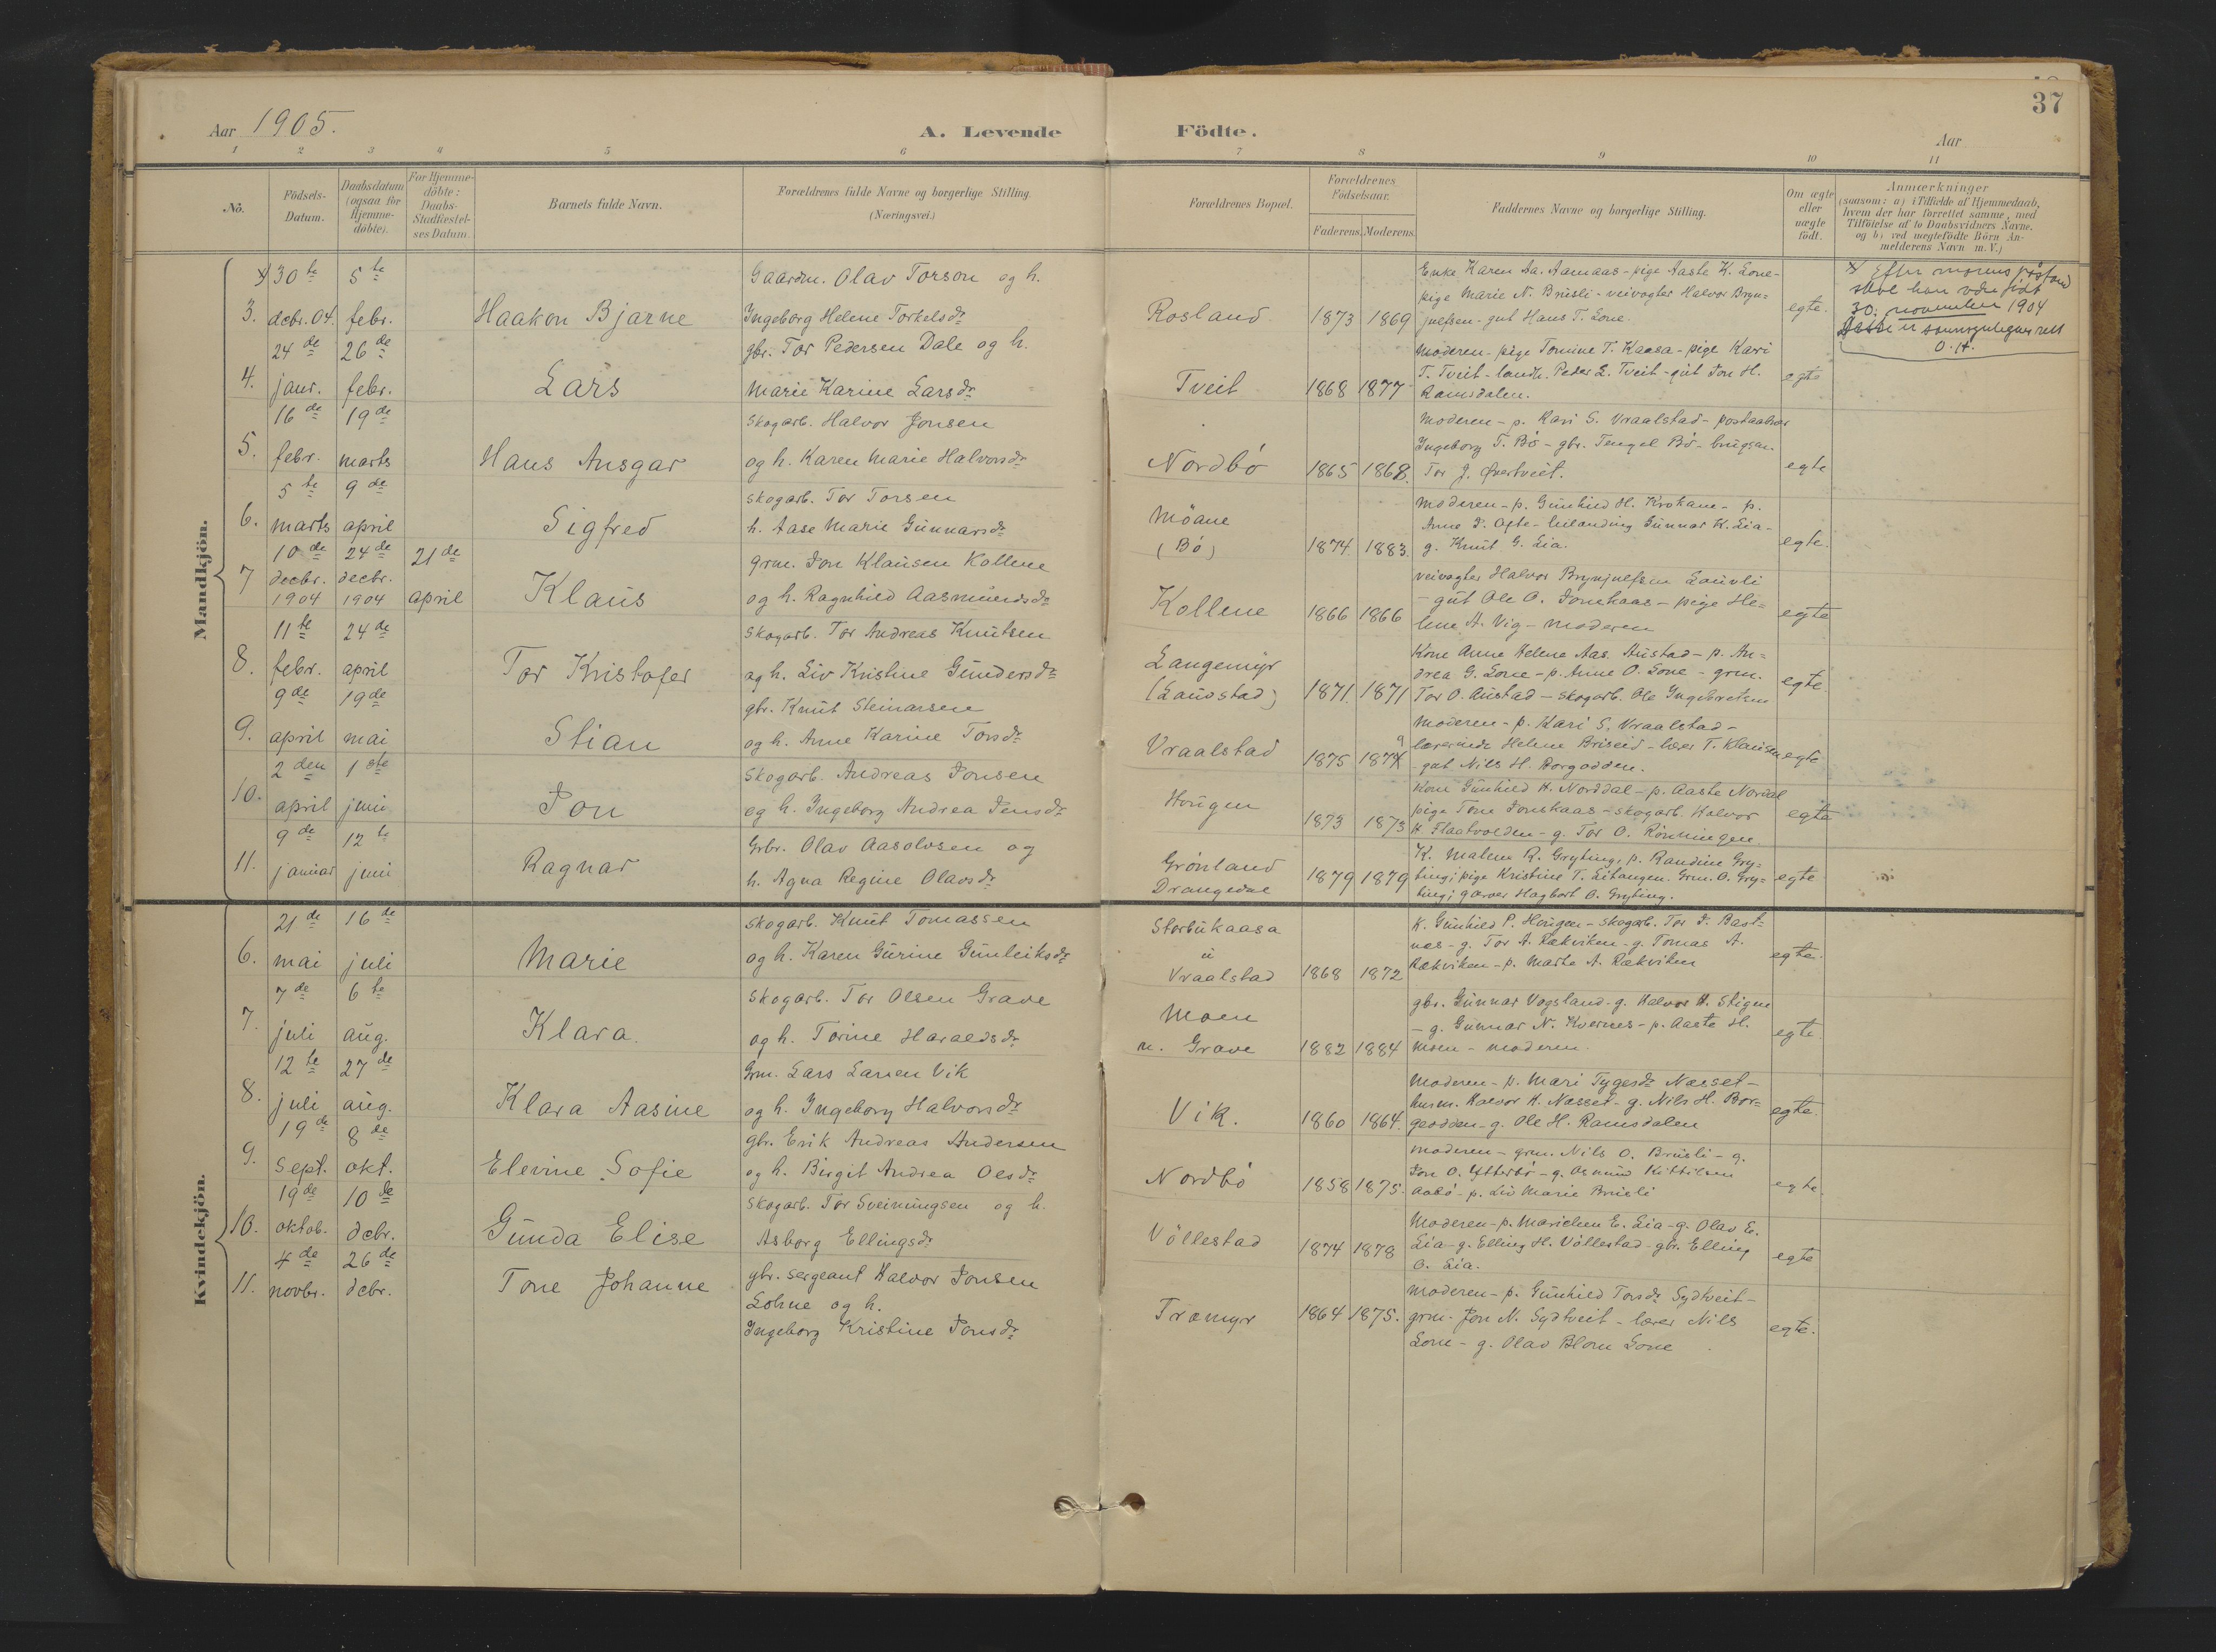 37
Aar 1905.
A. Levende Födte.
Aar
1 2 3 4 5 6 7 8 9 10 11
No.
Födsels-Datum.
Daabsdatum (ogsaa for Hjemme-döbte).
For Hjemme-döbte: Daabs-Stadfæstel-ses Datum.
Barnets fulde Navn.
Forældrenes fulde Navne og borgerlige Stilling. (Næringsvei.)
Forældrenes Bopæl.
Forældrenes Födselsaar.
Faderens. Moderens.
Faddernes Navne og borgerlige Stilling.
Om ægte eller uægte födt.
Anmærkninger
(saasom: a) i Tilfælde af Hjemmedaab, hvem der har forrettet samme, med Tilföielse af to Daabsvidners Navne. og b) ved uægtefödte Börn An-melderens Navn m. V.)
Mandkjön.
3. 30te decbr. 04. 5te febr.
Haakon Bjarne
Gaardm. Olav Torson og h.
Ingeborg Helene Torkelsdr
Rosland 1873 1869
Enke Karen Aa. Aamaas - pige Aaste K. Lone -
pige Marie N. Brusli - veivogter Halvor Bryn=
julfsen - gut Hans T. Lone.
egte.
Efter morens påstand
skal han være født
30. november 1904
O. H.
4. 24de janr. 26de febr.
Lars
gbr. Tor Pedersen Dale og h.
Marie Karine Larsdr
Tveit 1868 1877
Moderen - pige Tomine T. Kaasa - pige Kari
T. Tveit - landh. Peder L. Tveit - gut Jon H.
Ramsdalen.
egte
5. 16de febr. 19de marts
Hans Ansgar
Skogarb. Halvor Jonsen
og h. Karen Marie Halvorsdr
Nordbö 1865 1868.
Moderen - p. Kari S. Vraalstad - postaabner
Ingeborg T. Bö - gbr. Tengel Bö - brugsm.
Tor J. Øvertveit.
egte
6. 5te marts 9de april
Sigfred
skogarb. Tor Torsen
h. Aase Marie Gunnarsdr
Möane
(Bö) 1874. 1883.
Moderen - p. Gunhild H. Krokane - p.
Anne J. Ofte - Gunnar K. Lia -
g. Knut G. Lia.
egte.
7 10de decbr. 1904 24de decbr. 1904 21de april
Klaus
grm. Jon Klausen Kollene
og h. Ragnhild Aasmundsdr
Kollene 1866 1866
veivogter Halvor Brynjulfsen Lauvli
- gut Ole O. Jonskaas - pige He=
lene A. Vig - moderen
egte
8. 11te febr. 24de april
Tor Kristofer
Skogarb. Tor Andreas Knutsen
og h. Liv Kristine Gundersdr
Langemyr
(Laudstad) 1871. 1871
Kone Anne Helene Aas. Austad - p. An=
drea G. Lone - p. Anne O. Lone - grm.
Tor O. Austad - skogarb. Ole Ingebretsen
egte.
9. 9de april 19de mai
Stian
gbr. Knut Steinarsen
og h. Anne Karine Torsdr
Vraalstad 1875 1879
Moderen - p. Kari S. Vraalstad -
lærerinde Helene Briseid - lær T. Klausen
- gut Nils H. Borgodden.
egte
10. 2den april 1ste juni
Jon
Skogarb. Andreas Jonsen
og h. Ingeborg Andrea Jensdr
Haugen 1873 1873
Kone Gunhild H. Norddal - p. Aaste Nordal
pige Tone Jonskaas - skogarb. Halvor
H. Flaatvolden - g. Tor O. Rönningen.
egte
11. 9de januar 12te juni
Ragnar
Grbr. Olav Aasolvsen og
h. Agna Regine Olavsdr
Grönland
Drangedal 1879 1879
K. Malene R. Gryting, p. Randine Gry=
ting; pige Kristine T. Eitangen. Grm. O. Gry=
ting; garver Hagbart O. Gryting.
egte
Kvindekjön.
6. 21de mai 16de juli
Marie
skogarb. Knut Tomassen
og h. Karen Gurine Gunleiksdr
Storbukaasa
u
Vraalstad 1868 1872
K. Gunhild P. Haugen - skogarb. Tor J. Bast=
næs - g. Tor A. Rækviken - g. Tomas A.
Rækviken - p. Marte A. Rækviken
egte.
7. 7de juli 6te aug.
Klara.
Skogarb. Tor Olsen Grave
og h. Torine Haraldsdr
Moen
u. Grave 1882 1884
gbr. Gunnar Vogsland - g. Halvor H. Stigen
- g. Gunnar N. Kvernes - p. Aaste H.
Moen - moderen.
egte
8. 12te juli 27de aug.
Klara Aasine
Grm. Lars Larsen Vik
og h. Ingeborg Halvorsdr
Vik. 1860 1864.
Moderen - p. Mari Tygesdr Næsset -
husm. Halvor H. Næsset - g. Nils H. Bor=
geodden - g. Ole H. Ramsdalen
egte.
9. 19de Sept. 8de okt.
Elevine Sofie
gbr. Erik Andreas Andersen
og h. Birgit Andrea Olsdr
Nordbö 1858 1875.
Moderen - grm. Nils O. Brusli - g.
Jon O. Ytterbö - g. Osmund Kittilsen
Aabö - p. Liv Marie Brusli
egte.
10. 19de oktob. 10de dcbr.
Gunda Elise
Skogarb. Tor Sveinungsen og h.
Asborg Ellingsdr
Völlestad 1874 1878
Moderen - p. Marichen E. Lia - g. Olav E.
Lia - g. Elling H. Völlestad - gbr. Elling
O. Lia.
egte
11. 4de novbr. 26de dcbr.
Tone Johanne
gbr. sergeant Halvor Jonsen
Lohne og h.
Ingeborg Kristine Jonsdr
Træmyr 1864 1875.
Moderen - p. Gunhild Torsdr Sydtveit -
grm. Jon N. Sydtveit - lærer Nils
Lone - g. Olav Blom Lone
egte.